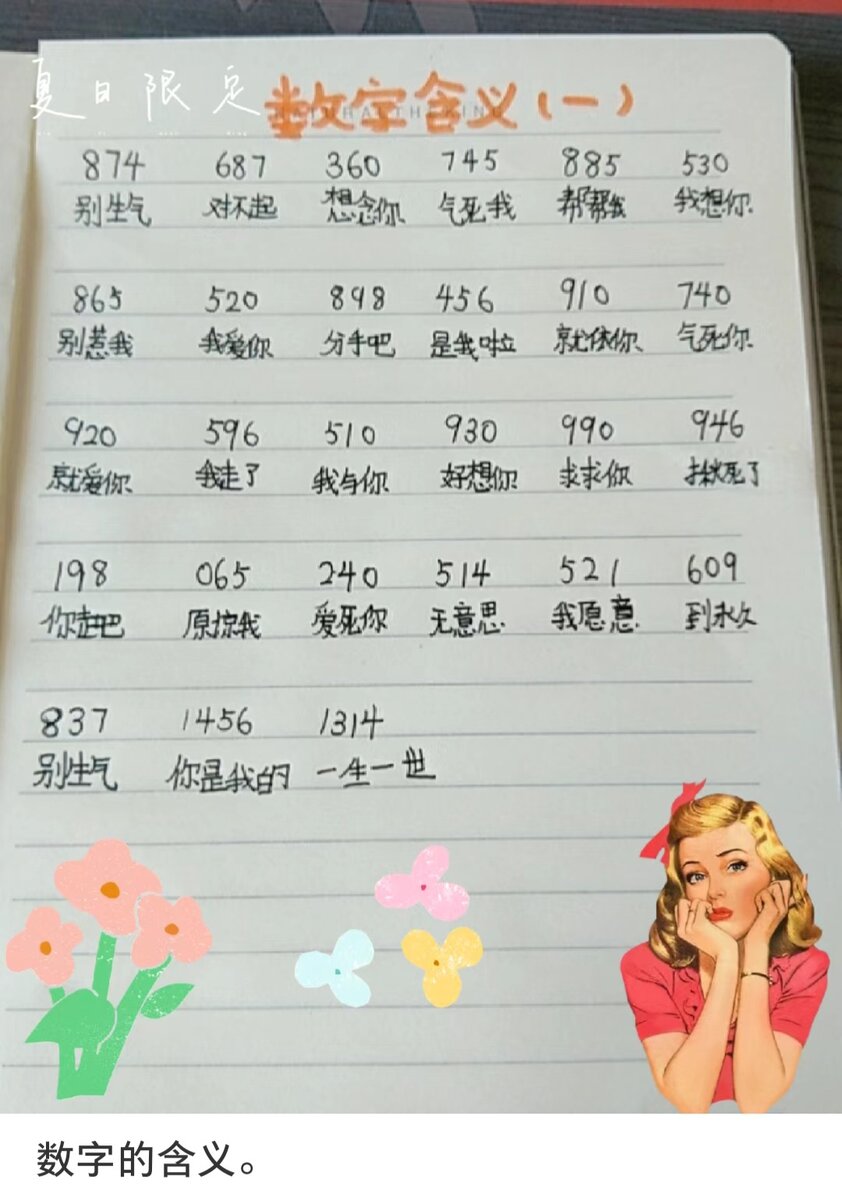 夏日限定
数字含义(一)
874 687 360 745 885 530
别生气 对不起 想念你 气死我 帮帮我 我想你
865 520 898 456 910 740
别惹我 我爱你 分手吧 是我啦 就依你 气死你
920 596 510 930 990 946
就爱你 我走了 我与你 好想你 求求你 揪死了
198 065 240 514 521 609
你走吧 原惊我 爱死你 无意思 我愿意 到永久
837 1456 1314
别生气 你是我的 一生一世
数字的含义。